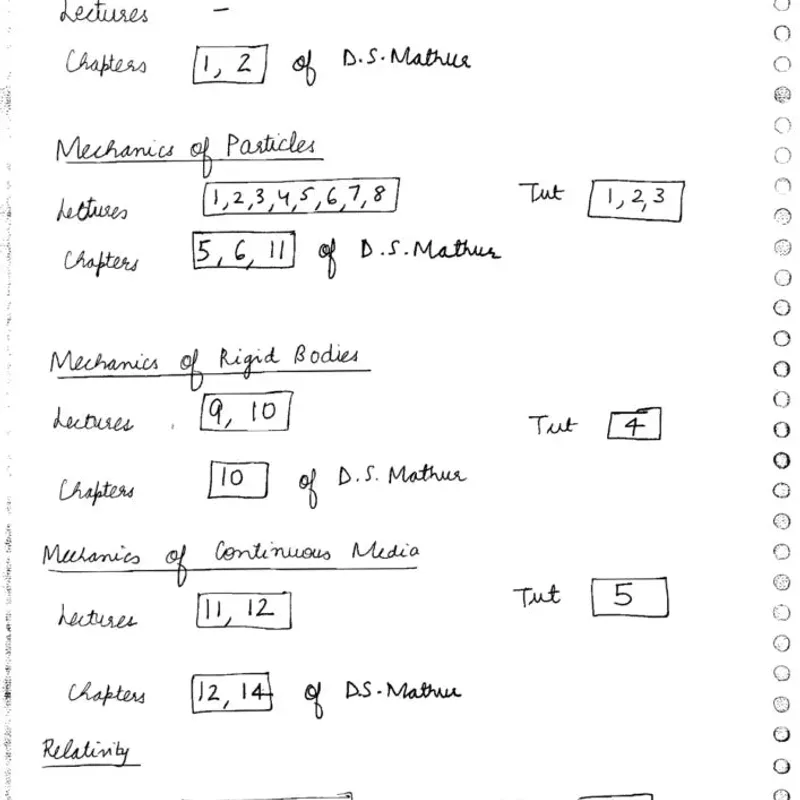 Lectures –
Chapters 1, 2 of D.S. Mathur
Mechanics of Particles
Lectures 1,2,3,4,5,6,7,8 Tut 1,2,3
Chapters 5, 6, 11 of D.S. Mathur
Mechanics of Rigid Bodies
Lectures 9, 10 Tut 4
Chapters 10 of D.S. Mathur
Mechanics of Continuous Media
Lectures 11, 12 Tut 5
Chapters 12, 14 of D.S. Mathur
Relativity